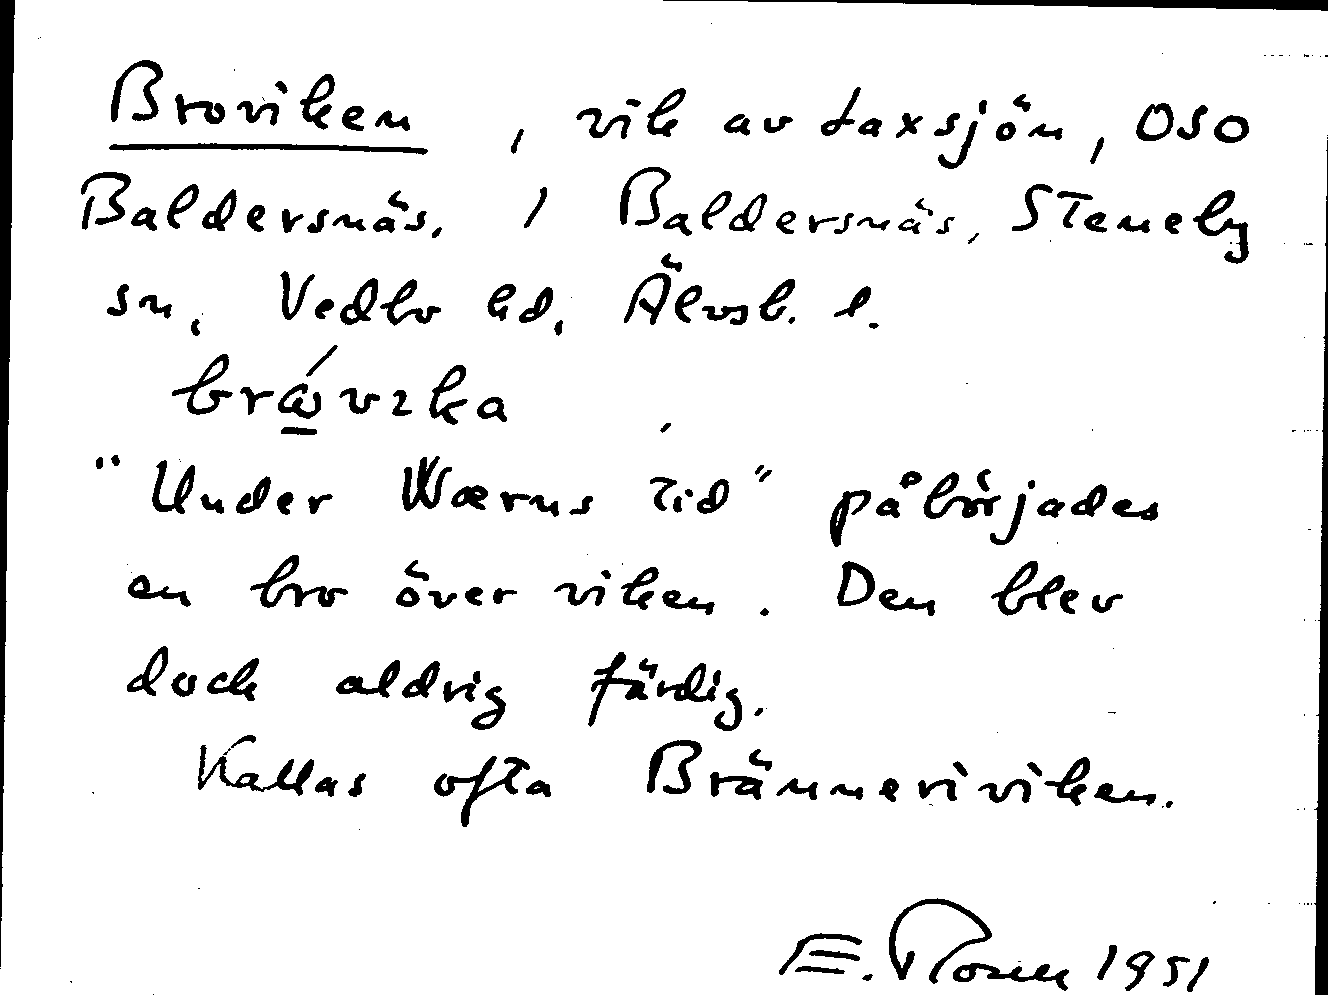 Broviken, vik av Laxsjön, OSO
Baldersnäs. / Baldersnäs, Steneby
sn, Vedbo hd, Älvsb. l.
"Under Wærns tid" påbörjades
en bro över viken. Den blev
dock aldrig färdig.
Kallas ofta Bränneriviken.
E. Rosen 1951